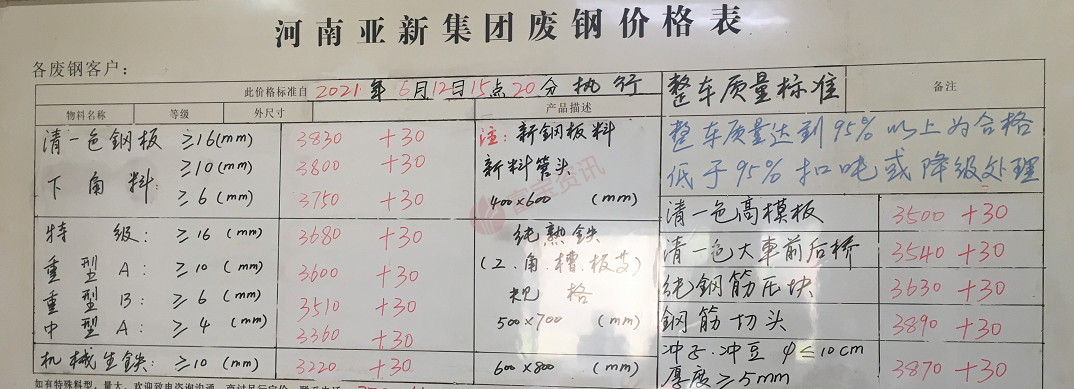 河南亚新集团废钢价格表
各废钢客户：
此价格标准自 2021年6月12日15点20分执行
整车质量标准
备注
物料名称 等级 外尺寸 产品描述
清一色鋼板 ≥16(mm) 3830 +30 注：新鋼板料
整车质量达到95%以上为合格
≥10(mm) 3800 +30 新料管头
低于95%扣吨或降级处理
下角料： ≥6(mm) 3750 +30 400×600 (mm)
清一色高模板 3500 +30
特级： ≥16(mm) 3680 +30 纯熟鉄
清一色大車前后桥 3540 +30
重型A： ≥10(mm) 3600 +30 (工.角.槽.板等)
纯鋼筋压块 3630 +30
重型B： ≥6(mm) 3510 +30 规格
中型A： ≥4(mm) 3360 +30 500×700 (mm)
鋼筋切头 3890 +30
机械生鉄： ≥10(mm) 3220 +30 600×800 (mm)
冲子.冲豆 φ≤10cm
厚度≥5mm 3870 +30
如有特殊料型、量大、欢迎致电咨询沟通